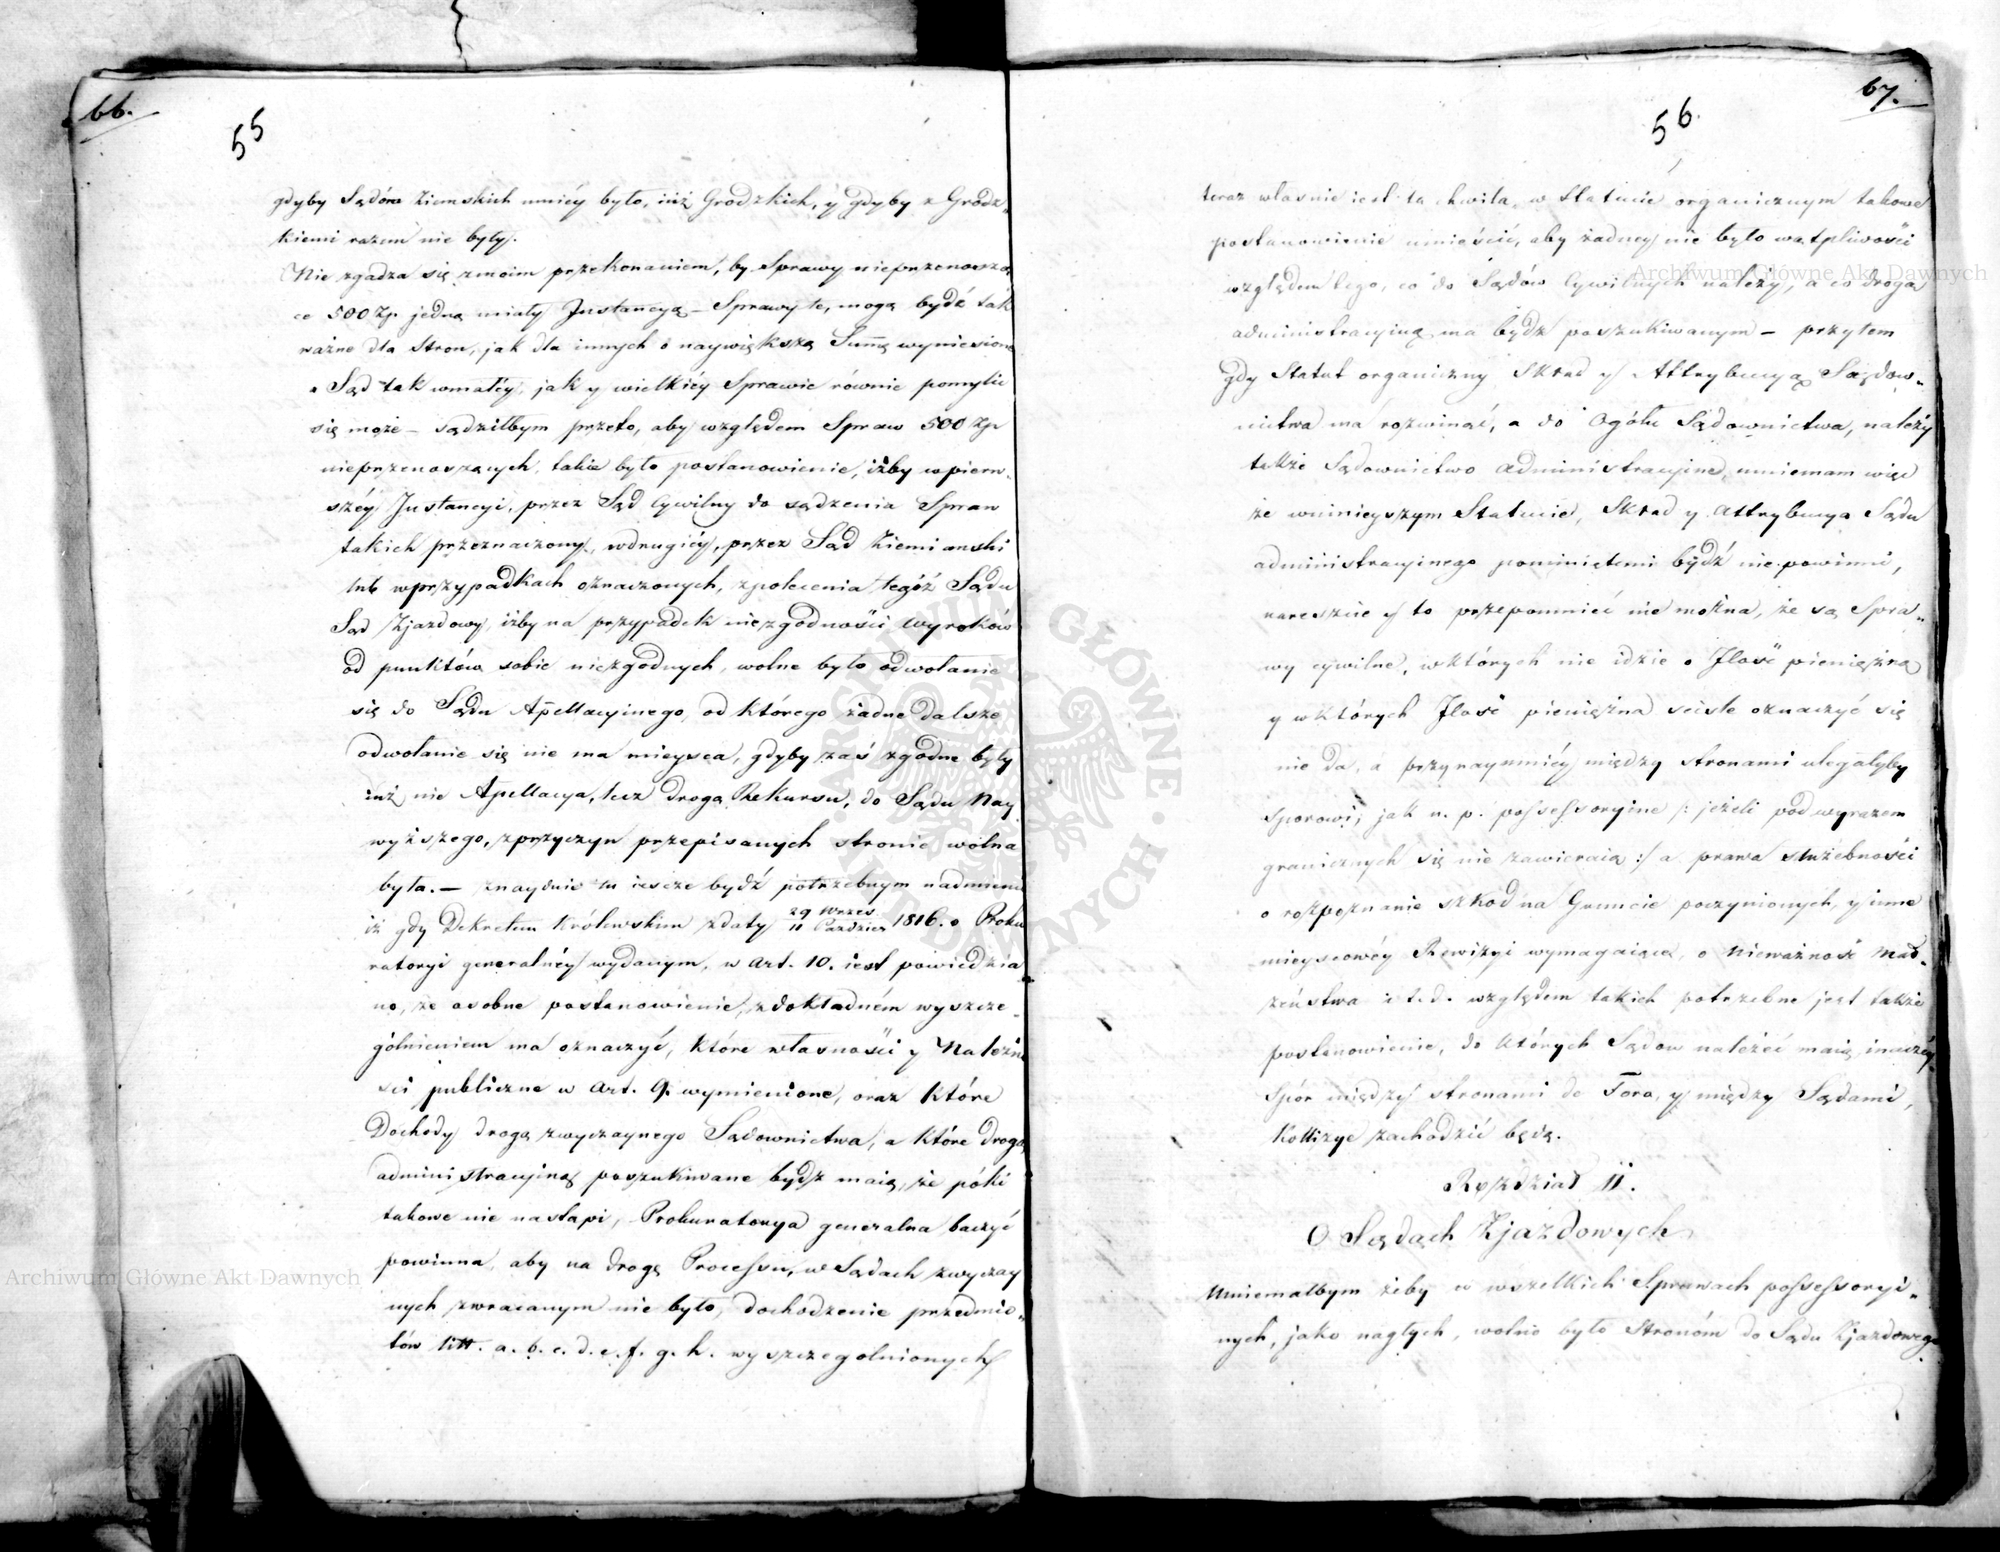 66.
55
gdyby Sądów Ziemskich mniéy było, niż Grodzkich, y gdyby z Grodz-
kiemi razem nie były.
Nie zgadza się z moim przekonaniem, by Sprawy nieprzenoszą
ce 500 Zp jedną miały Jnstancyą – Sprawy te, mogą bydź tak
ważne dla Stron, jak dla innych o naywiększą Summę wyniesione
a Sąd tak w małéy, jak y wielkiéy Sprawie równie pomylić
się może – sądziłbym przeto, aby względem Spraw 500 Zp
nieprzenoszących, takie było postanowienie, iżby w pierw-
széy Jnstancyi, przez Sąd Cywilny do sądzenia Spraw
takich przeznaczony, w drugiéy, przez Sąd Ziemianski
lub w przypadkach oznaczonych, z polecenia tegóż Sądu
Sąd Zjazdowy, iżby na przypadek niezgodności Wyroków
od punktów sobie niezgodnych, wolne było odwołanie
się do Sądu Apellacyinego, od którego żadne dalsze
odwołanie się nie ma mieysca, gdyby zaś zgodne były
iuż nie Apellacya, lecz drogą Rekursu, do Sądu Nay
wyższego, z przyczyn przepisanych stronie wolna
była. – znayduię tu ieszcze bydź potrzebnym nadmienić
iż gdy Dekretem Królewskim z daty 29 Wrześ / 11 Pazdzier 1816. o Proku
ratoryi generalnéy wydanym, w art. 10. iest powiedzia
no, że osobne postanowienie, z dokładném wyszcze-
gólnieniem ma oznaczyć, które własności y Należno
ści publiczne w art. 9. wymienione, oraz które
Dochody drogą zwyczaynego Sądownictwa, a które drogą
administracyiną poszukiwane bydz maią, że póki
takowe nie nastąpi, Prokuratorya generalna baczyć
powinna, aby na drogę Processu, w Sądach zwyczay
nych zwracanym nie było, dochodzenie przedmio-
tów litt. a. b. c. d. e. f. g. h. wyszczegolnionych
67.
56.
teraz własnie iest ta chwila, w Statucie organicznym takowe
postanowienie umieścić, aby żadney nie było wątpliwości
względem tego, co do Sądów Cywilnych należy, a co drogą
administracyiną ma bydź poszukiwanym – przytem
gdy Statut organiczny Skład y Attrybucyą Sądow-
nictwa ma rozwinąć, a do Ogółu Sądownictwa, należy
także Sądownictwo administracyine, mniemam więc
że w niniejszym Statucie, Skład y Attrybucya Sądu
administracyinego pominiętemi bydź nie powinni,
nareszcie y to przepomnieć nie można, że są Spra-
wy cywilne, w których nie idzie o Jlość pieniężną
y w których Jlość pieniężna sciśle oznaczyć się
nie da, a przynaymniéy między stronami ulegałyby
Sporowi, jak n. p. possessoryine /: jeżeli pod wyrazem
granicznych się nie zawieraią :/ a prawa służebności
o rozpoznanie szkod na Gruncie poczynionych, y inne
mieyscowéy Rewizyi wymagaiące, o Nieważność Mał-
żeństwa i t. d. względem takich potrzebne jest także
postanowienie, do których Sądow należeć maią, inaczéy
Spór między stronami do Fora, y między Sądami,
Kollizye zachodzić będą.
Rozdział II.
O Sądach Zjazdowych
Mniemałbym żeby w wszelkich Sprawach possessoryi-
nych, jako nagłych, wolno było Stronóm do Sądu Zjazdowego
Archiwum Główne Akt Dawnych
Archiwum Główne Akt Dawnych
ARCHIWUM GŁÓWNE AKT DAWNYCH